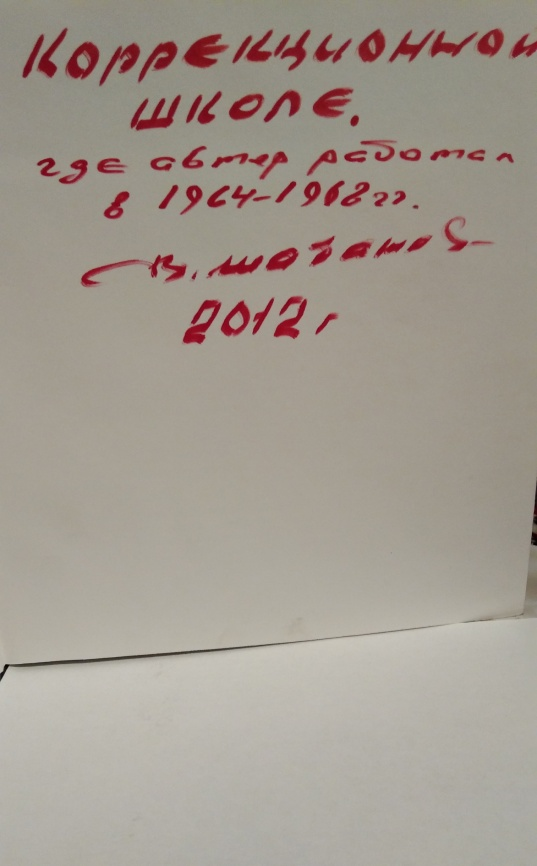 Коррекционной
школе,
где автор работал
в 1964-1968 гг.
В. Шабанов
2012 г